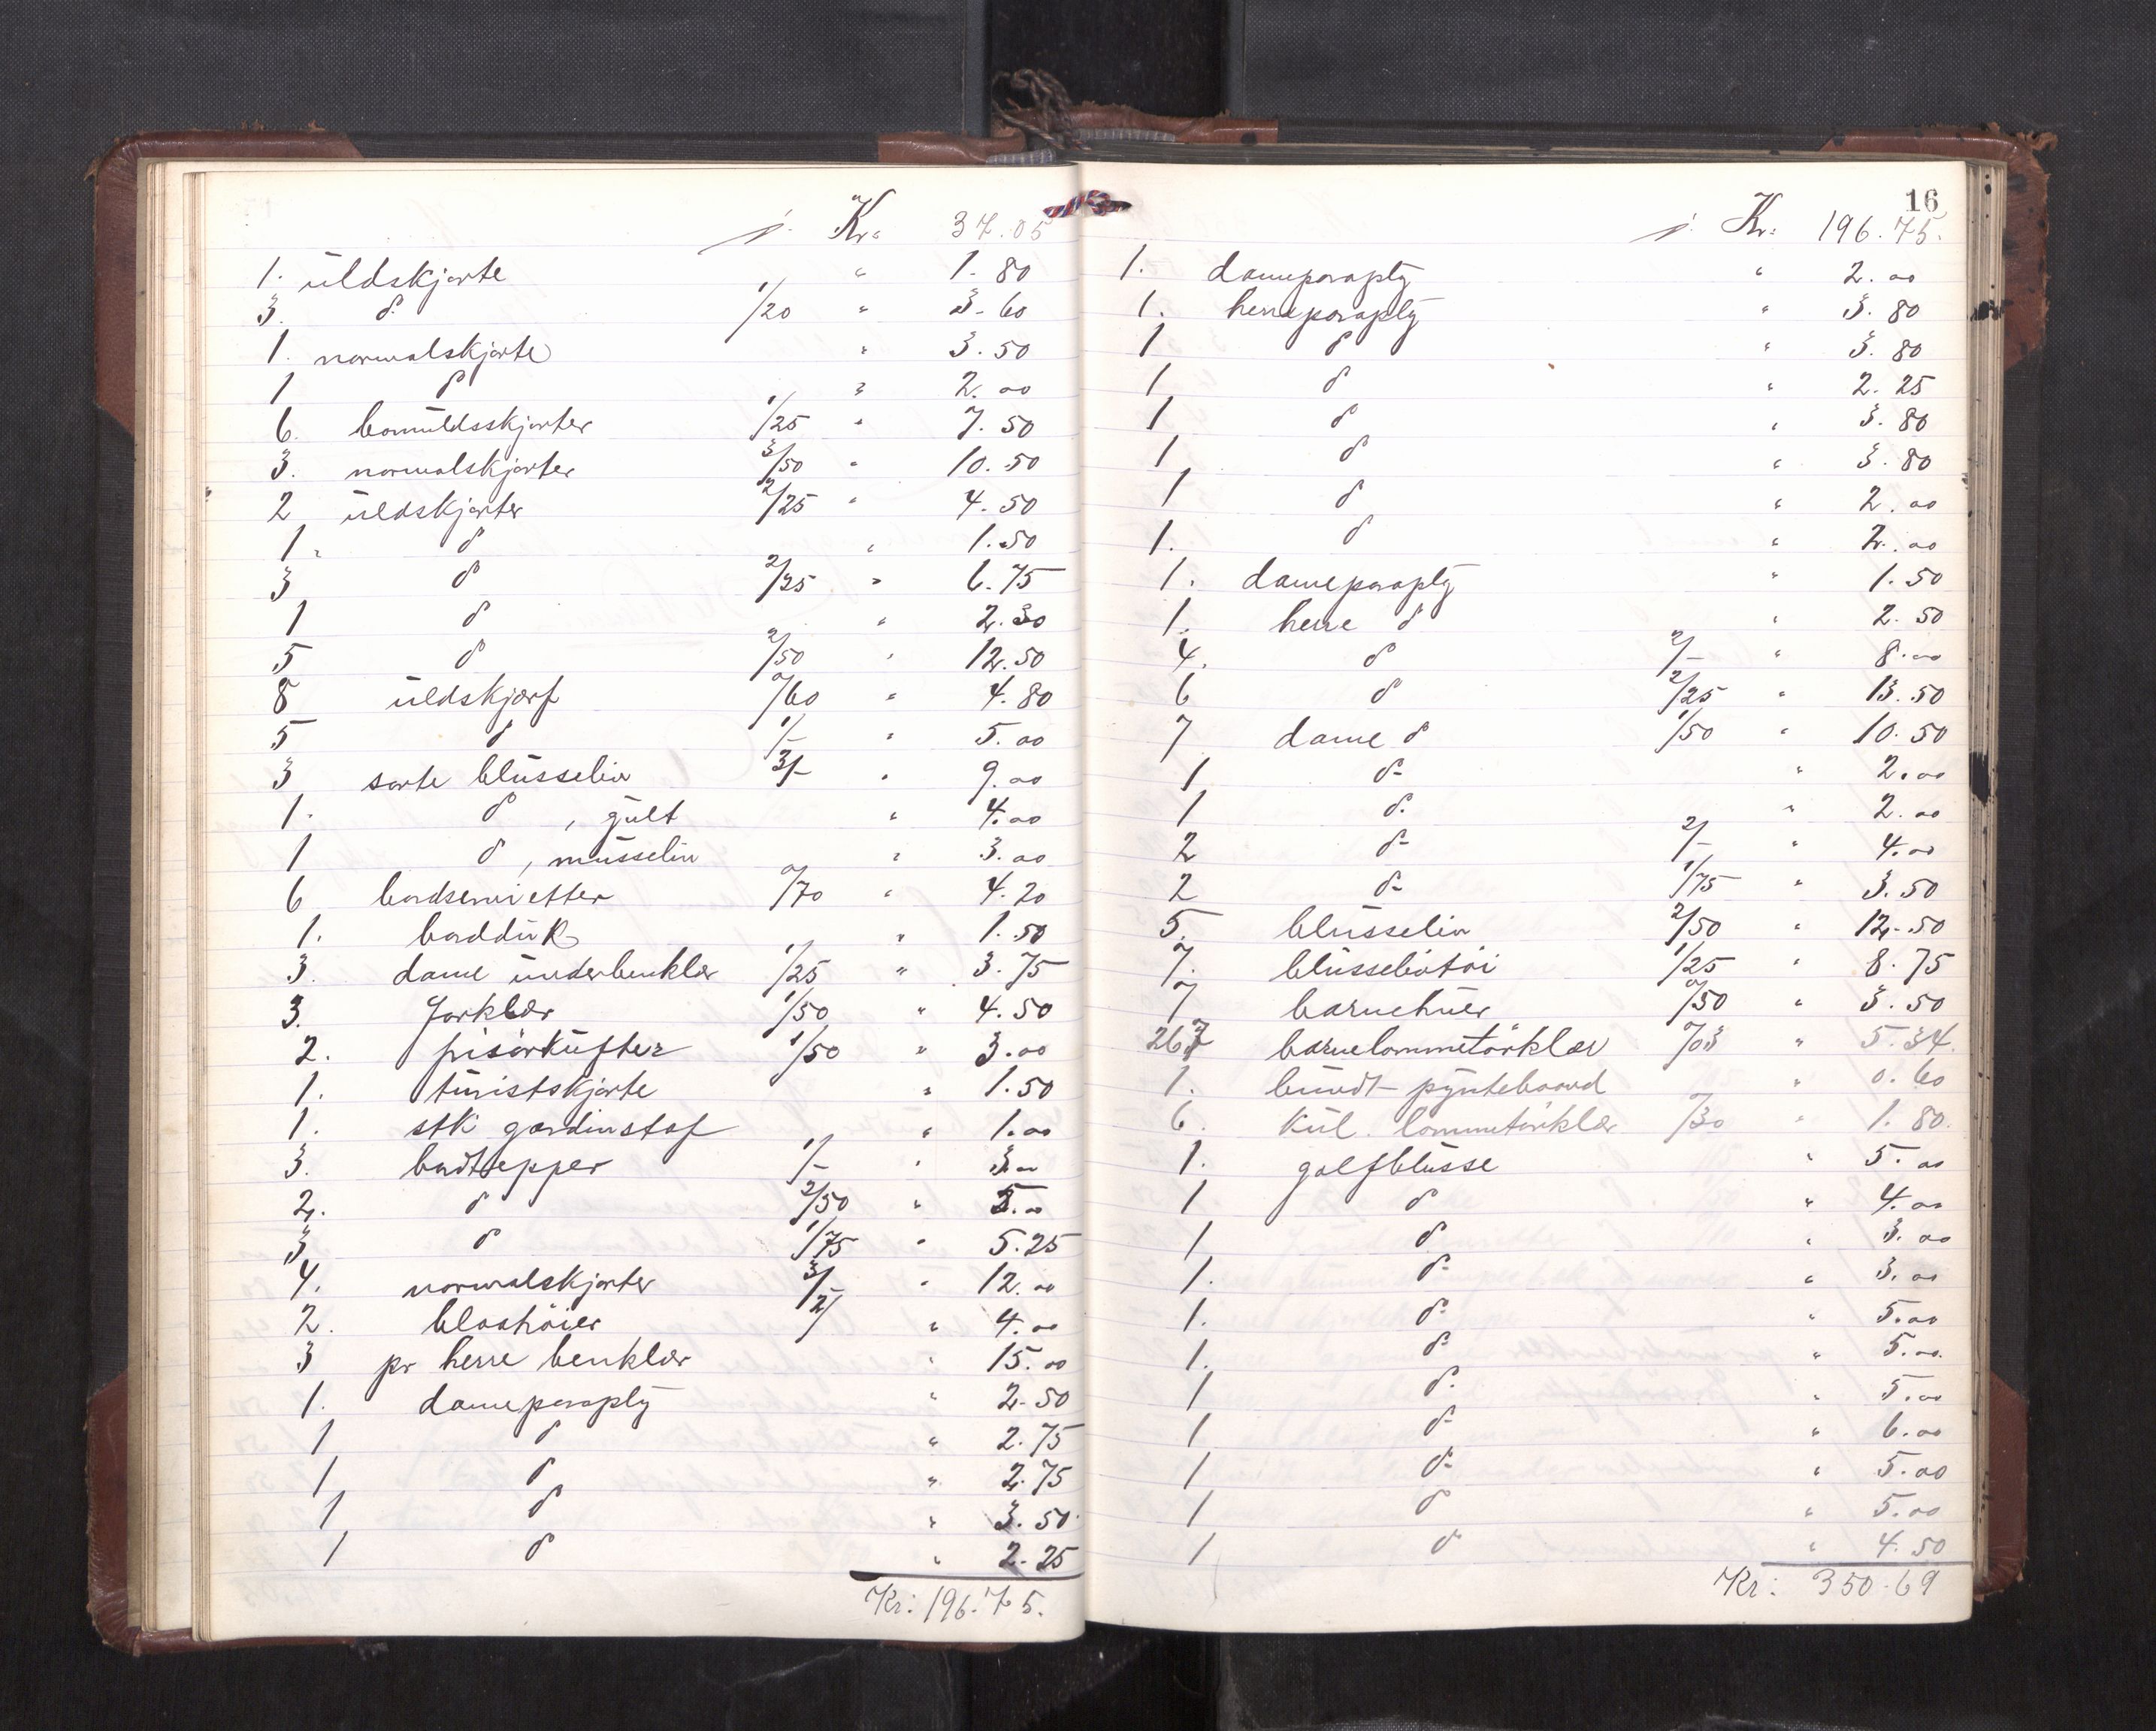 Kr: 37.05
1. uldskjorte " 1.80
3. d 1/20 " 3.60
1. normalskjorte " 3.50
1 d " 2.00
6. bomuldsskjorter 1/25 " 7.50
3. normalskjorter 3/50 " 10.50
2 uldskjorter 2/25 " 4.50
1. d " 1.50
3 d 2/25 " 6.75
1 d " 2.30
5 d 2/50 " 12.50
8 uldskjærf 0/60 " 4.80
5 d 1/- " 5.00
3 sorte blusseliv 3/- " 9.00
1. d , gult " 4.00
1 d , musselin " 3.00
6 bordservietter 0/70 " 4.20
1. bordduk " 1.50
3. dame underbenklær 1/25 " 3.75
3. forklær 1/50 " 4.50
2. frisörkufter 1/50 " 3.00
1. turistskjorte " 1.50
1. stk gardinstof " 1.00
3. bordtepper 1/- " 3.00
2. d 2/50 " 5.00
3 d 1/75 " 5.25
4. normalskjorter 3/- " 12.00
2. blaatröier 2/ " 4.00
3 pr herre benklær " 15.00
1. dameparaply " 2.50
1 d " 2.75
1 d " 2.75
1 d " 3.50
1 d " 2.25
Kr: 196.75.
16
Kr: 196.75.
1. dameparaply " 2.00
1. herreparaply " 3.80
1 d " 3.80
1 d " 2.25
1 d " 3.80
1 d " 3.80
1 d " 2.00
1. d " 2.00
1. dameparaply " 1.50
1. herre d " 2.50
4. d 2/- " 8.00
6 d 2/25 " 13.50
7 dame d 1/50 " 10.50
1 d " 2.00
1 d " 2.00
2 d 2/- " 4.00
2 d 1/75 " 3.50
5. blusseliv 2/50 " 12.50
7. blusselivtöi 1/25 " 8.75
7 barnehuer 0/50 " 3.50
267 barnelommetörklær 0/03 " 5.34.
1. bundt pyntebaand " 0.60
6. kul. lommetörklær 0/30 " 1.80.
1. golfblusse " 5.00
1 d " 4.00
1 d " 3.00
1. d " 3.00
1. d " 5.00
1. d " 5.00.
1 d " 5.00
1 d " 6.00
1 d " 5.00
1 d " 5.00
1 d " 4.50
Kr: 350.69